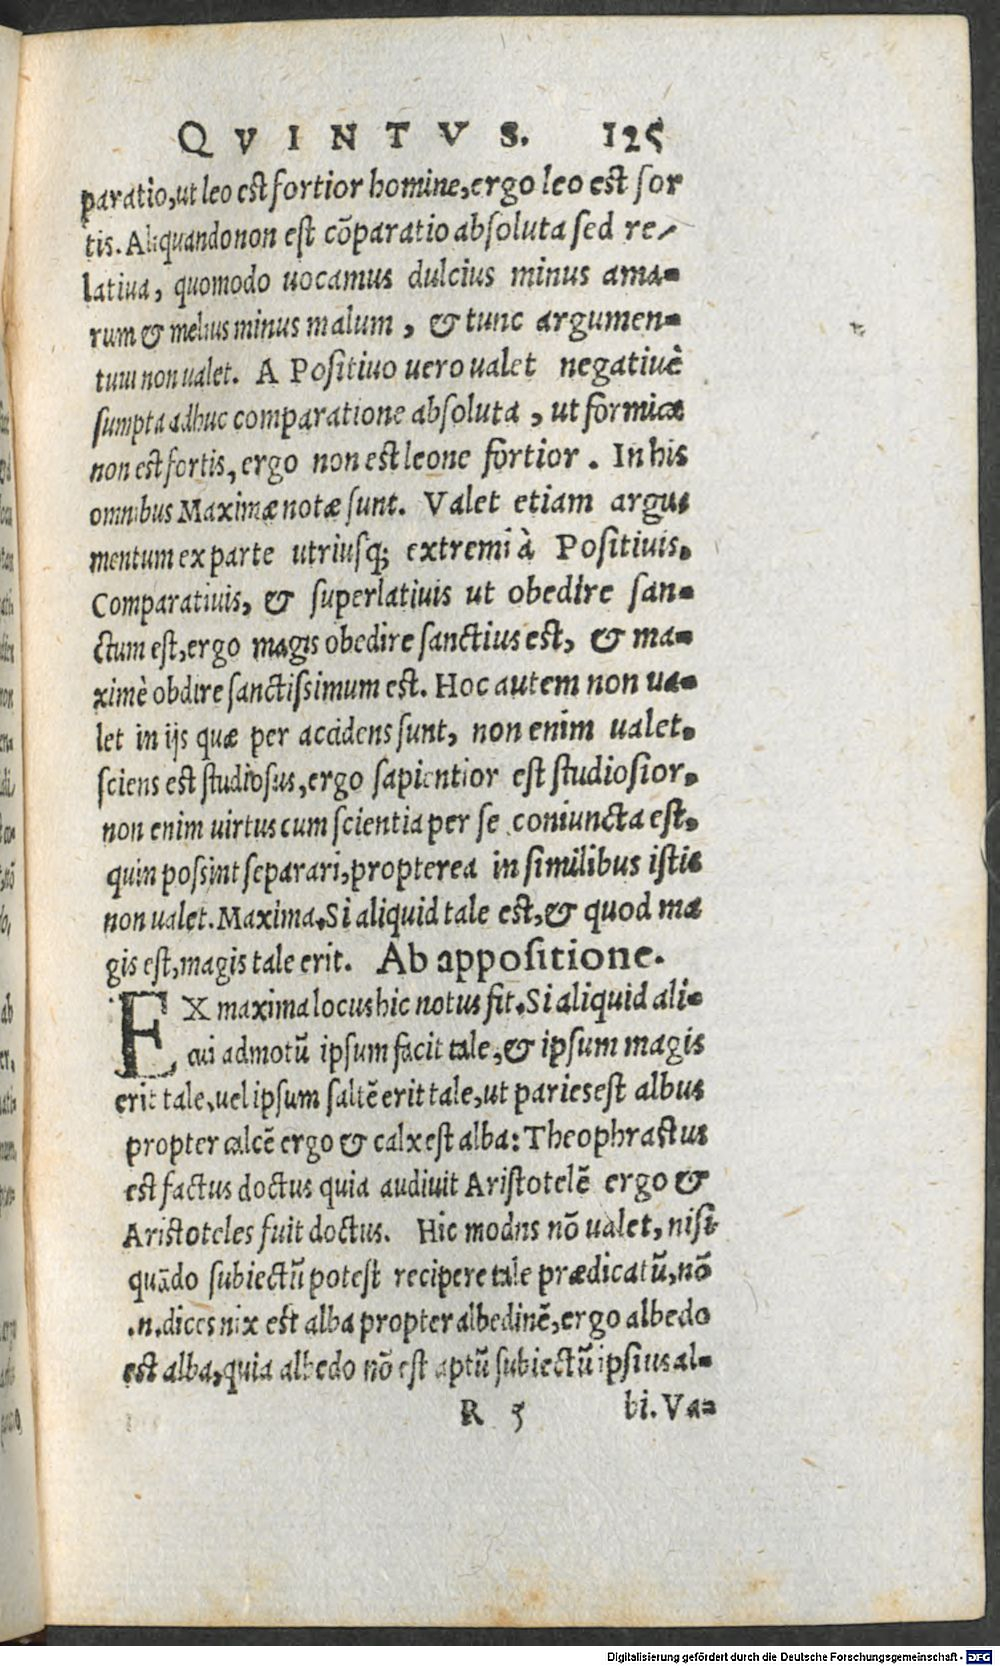 QVINTVS. 125
paratio, ut leo est fortior homine, ergo leo est for
tis. Aliquando non est cōparatio absoluta sed re-
latiua, quomodo uocamus dulcius minus ama-
rum & melius minus malum, & tunc argumen-
tum non ualet. A Positiuo uero ualet negatiuè
sumpta adhuc comparatione absoluta, ut formica
non est fortis, ergo non est leone fortior. In his
omnibus Maximæ notæ sunt. Valet etiam argu-
mentum ex parte utriusq; extremi à Positiuis.
Comparatiuis, & superlatiuis ut obedire san-
ctum est, ergo magis obedire sanctius est, & ma-
ximè obdire sanctissimum est. Hoc autem non ua-
let in ijs quæ per accidens sunt, non enim ualet.
sciens est studiosus, ergo sapientior est studiosior.
non enim uirtus cum scientia per se coniuncta est.
quin possint separari, propterea in similibus istis
non ualet. Maxima. Si aliquid tale est, & quod ma
gis est, magis tale erit. Ab appositione.
EX maxima locus hic notus fit. Si aliquid ali-
cui admotū ipsum facit tale, & ipsum magis
erit tale, uel ipsum saltē erit tale, ut paries est albus
propter calcē ergo & calx est alba: Theophrastus
est factus doctus quia audiuit Aristotelē ergo &
Aristoteles fuit doctus. Hic modns nō ualet, nisi
quādo subiectū potest recipere tale prædicatū, nō
.n. dices nix est alba propter albedinē, ergo albedo
est alba, quia albedo nō est aptū subiectū ipsius al-
R 5 bi. Va-
Digitalisierung gefördert durch die Deutsche Forschungsgemeinschaft - DFG